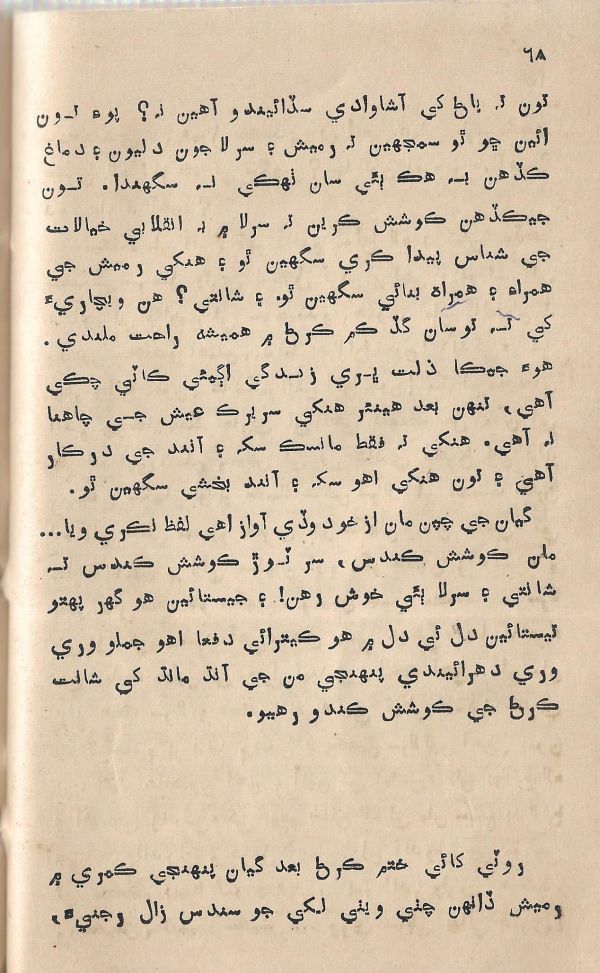 ٦٨
تون تہ پاڻ کي آشاوادي سڏائيندو آهين نہ؟ پوءِ تون
ائين ڇو ٿو سمجهين تہ رميش ۽ سرلا جون دليون ۽ دماغ
ڪڏهن بہ هڪ ٻئي سان ٺهڪي نہ سگهندا. تون
جيڪڏهن ڪوشش ڪرين تہ سرلا ۾ بہ انقلابي خيالات
جي شناس پيدا ڪري سگهين ٿو ۽ هنکي رميش جي
همراه ۽ همراه بنائي سگهين ٿو. ۽ شانتي؟ هن ويچاريءَ
کي تہ توسان گڏ ڪم ڪرڻ ۾ هميشہ راحت ملندي.
هوءَ جيڪا ذلت ڀري زندگي اڳيئي ڪاٽي چڪي
آهي، تنهن بعد هينئر هنکي سريرڪ عيش جي چاهنا
نہ آهي. هنکي تہ فقط مانسڪ سک ۽ آنند جي درڪار
آهي ۽ تون هنکي اهو سک ۽ آنند بخشي سگهين ٿو.
گيان جي چپن مان از خود وڏي آواز اهي لفظ نڪري ويا...
مان ڪوشش ڪندس، سر توڙ ڪوشش ڪندس تہ
شانتي ۽ سرلا ٻئي خوش رهن! ۽ جيستائين هو گهر پهتو
تيستائين دل ئي دل ۾ هو ڪيترائي دفعا اهو جملو وري
وري دهرائيندي پنهنجي من جي آنڌ مانڌ کي شانت
ڪرڻ جي ڪوشش ڪندو رهيو.
روٽي کائي ختم ڪرڻ بعد گيان پنهنجي ڪمري ۾
رميش ڏانهن چٺي ويٺي لکي جو سندس زال رجنيءَ،